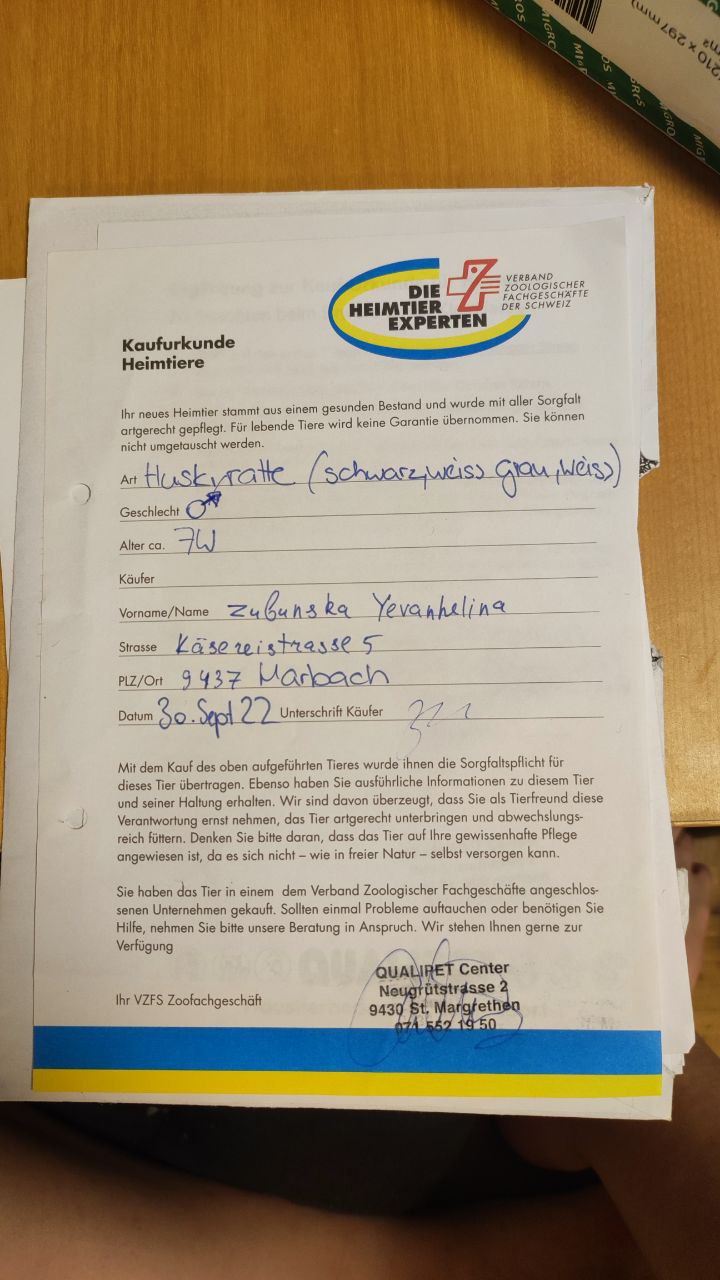 (210 x 297 mm)
MIGROS
DIE
HEIMTIER
EXPERTEN
VERBAND
ZOOLOGISCHER
FACHGESCHÄFTE
DER SCHWEIZ
Kaufurkunde
Heimtiere
Ihr neues Heimtier stammt aus einem gesunden Bestand und wurde mit aller Sorgfalt
artgerecht gepflegt. Für lebende Tiere wird keine Garantie übernommen. Sie können
nicht umgetauscht werden.
Art Huskyratte (schwarz,weiss grau,weiss)
Geschlecht ♂
Alter ca. 7W
Käufer
Vorname/Name Zubunska Yevanhelina
Strasse Käsereistrasse 5
PLZ/Ort 9437 Marbach
Datum 30. Sept 22 Unterschrift Käufer
Mit dem Kauf des oben aufgeführten Tieres wurde ihnen die Sorgfaltspflicht für
dieses Tier übertragen. Ebenso haben Sie ausführliche Informationen zu diesem Tier
und seiner Haltung erhalten. Wir sind davon überzeugt, dass Sie als Tierfreund diese
Verantwortung ernst nehmen, das Tier artgerecht unterbringen und abwechslungs-
reich füttern. Denken Sie bitte daran, dass das Tier auf Ihre gewissenhafte Pflege
angewiesen ist, da es sich nicht – wie in freier Natur – selbst versorgen kann.
Sie haben das Tier in einem dem Verband Zoologischer Fachgeschäfte angeschlos-
senen Unternehmen gekauft. Sollten einmal Probleme auftauchen oder benötigen Sie
Hilfe, nehmen Sie bitte unsere Beratung in Anspruch. Wir stehen Ihnen gerne zur
Verfügung
Ihr VZFS Zoofachgeschäft
QUALIPET Center
Neugrütstrasse 2
9430 St. Margrethen
071 552 19 50